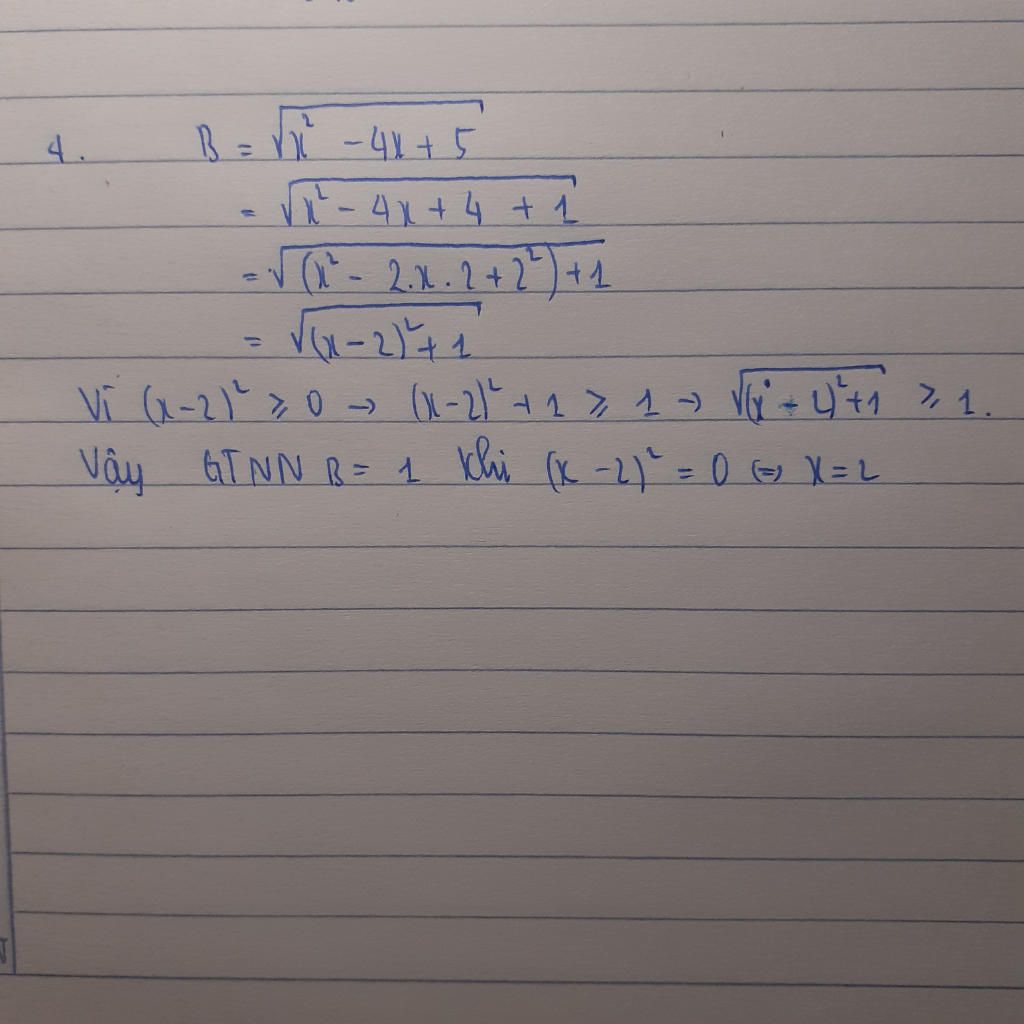 4. B = √(x² - 4x + 5)
= √(x² - 4x + 4 + 1)
= √((x² - 2.x.2 + 2²) + 1)
= √((x - 2)² + 1)
Vì (x-2)² ⩾ 0 → (x-2)² + 1 ⩾ 1 → √((x - 2)² + 1) ⩾ 1.
Vậy GTNN B = 1 khi (x - 2)² = 0 ⇔ x = 2